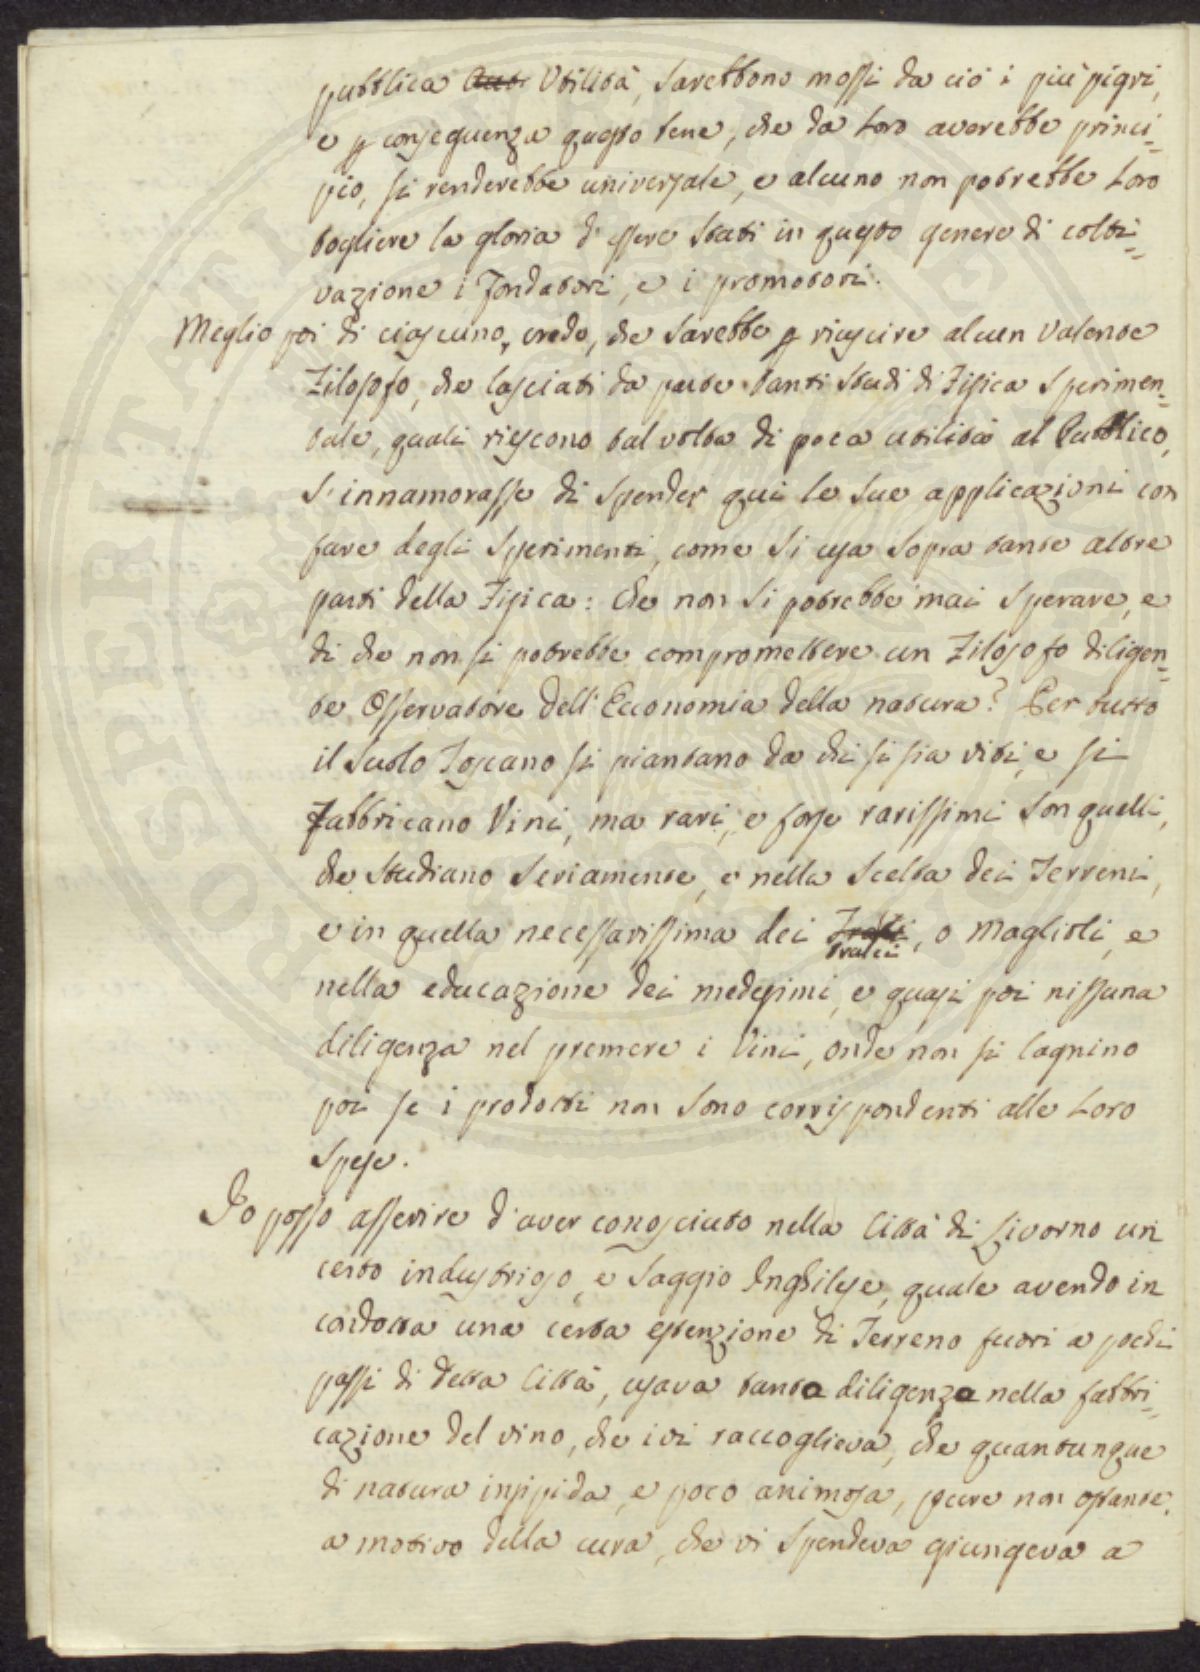 pubblica Utilità, sarebbono mossi da ciò i più pigri,
e p conseguenza questo bene, che da Loro averebbe princi=
pio, si renderebbe universale, e alcuno non potrebbe Loro
togliere la gloria d'essere stati in questo genere di colti=
vazione i Fondatori, e i promotori.
Meglio poi di ciascuno, credo, che sarebbe p riuscire alcun Valente
Filosofo, che lasciati da parte tanti studi di Fisica Sperimen=
tale, quali riescono tal volta di poca utilità al Pubblico,
s'innamorasse di spender qui le sue applicazioni con
fare degli sperimenti, come si usa sopra tante altre
parti della Fisica: che non si potrebbe mai sperare, e
di che non si potrebbe compromettere un Filosofo diligen=
te Osservatore dell'Economia della natura? Per tutto
il suolo Toscano si piantano da chi si sia viti, e si
Fabbricano Vini, ma rari, e forse rarissimi son quelli,
che studiano seriamente, e nella scelta dei Terreni,
e in quella necessarissima dei Tralci, o Maglioli, e
nella educazione dei medesimi, e quasi poi nissuna
diligenza nel premere i Vini, onde non si lagnino
poi se i prodotti non sono corrispondenti alle Loro
spese.
Io posso asserire d'aver conosciuto nella Città di Livorno un
certo industrioso, e saggio Inghilese, quale avendo in
condotta una certa estenzione di Terreno fuori a pochi
passi di detta Città, usava tanta diligenza nella fabbri=
cazione del vino, che ivi raccoglieva, che quantunque
di natura insipida, e poco animosa, pure non ostante,
a motivo della cura, che vi spendeva giungeva a